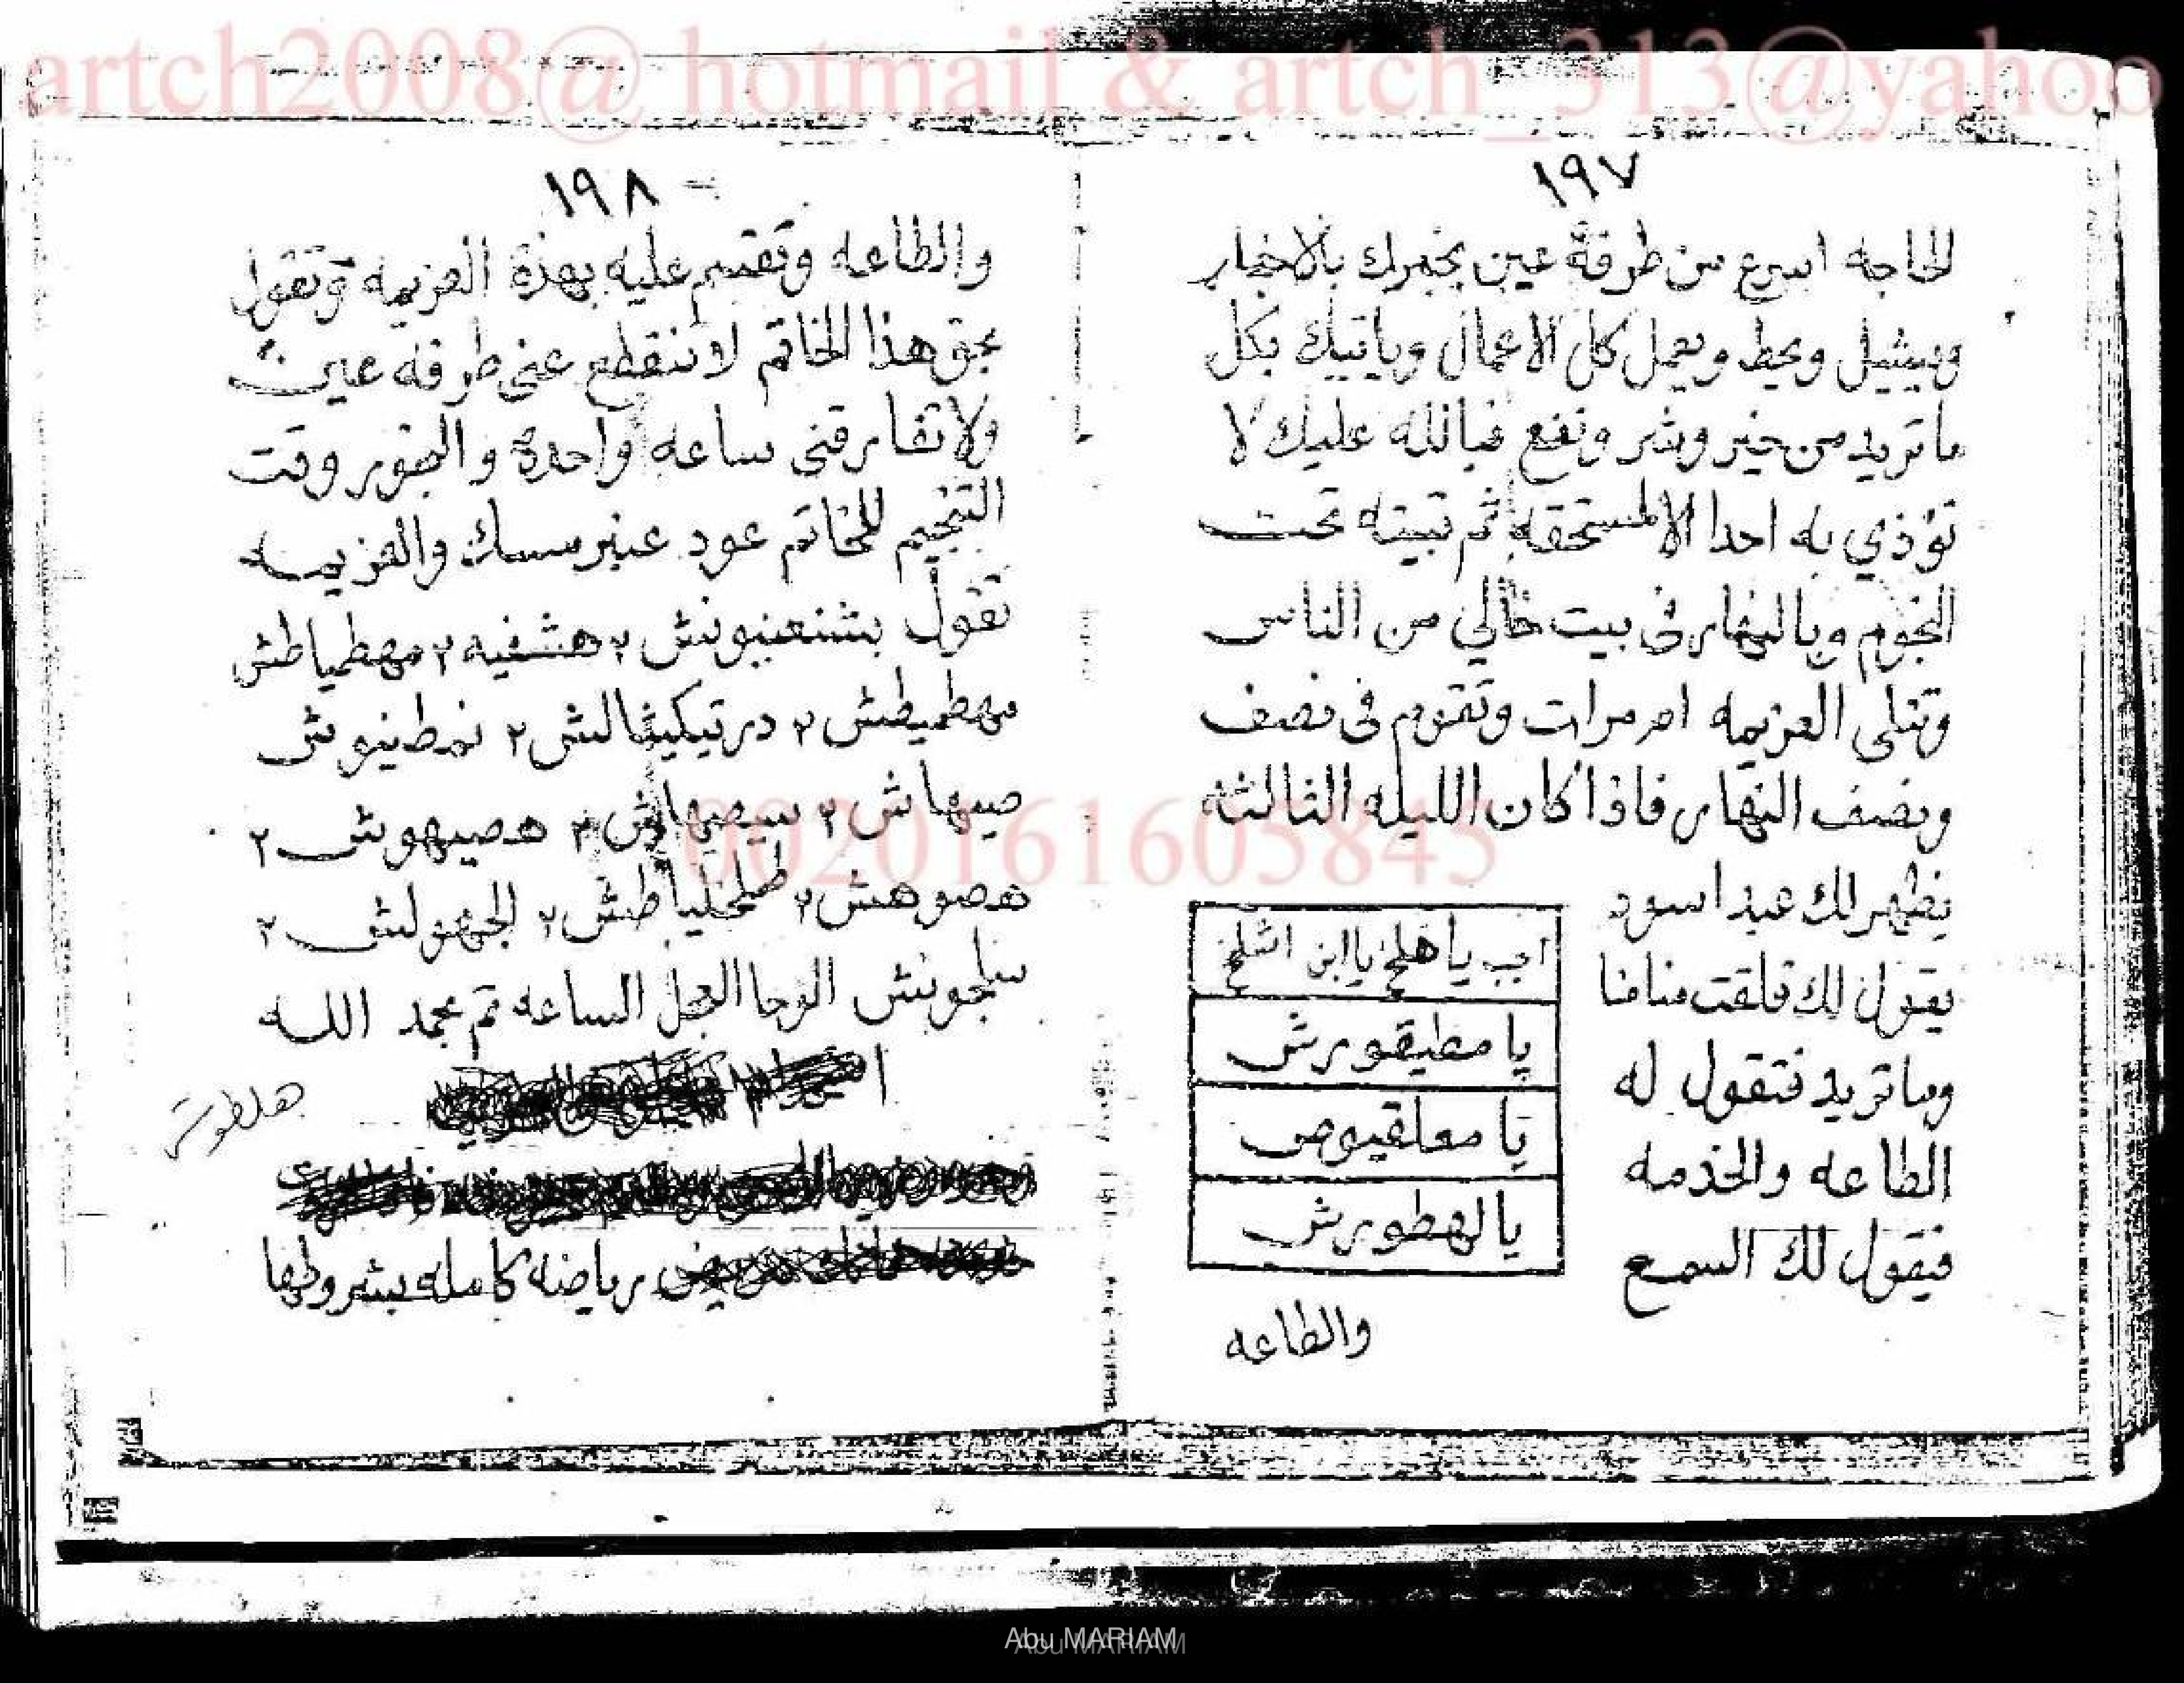 artch2008@ hotmail & artch_313@yahoo
١٩٧
الحاجه اسرع من طرفة عين يخبرك بالاخبار
ويشيل ويحط ويعمل كل الاعمال وياتيك بكل
ما تريد من خير وشر ونفع فبالله عليك لا
تؤذي به احدا الا لمستحقه ثم تبيته تحت
النجوم وبالنهار فى بيت خالي من الناس
وتتلى العزيمه مرات وتقوم فى نصف
ونصف النهار فاذا كان الليله الثالثه
يظهر لك عبد اسود
يقول لك قلقت منامنا
وما تريد فتقول له
الطاعه والخدمه
فيقول لك السمع
اجب يا هلخ يا ابن اشلخ
يا مطيقورش
يا معلقيوص
يا لهطورش
والطاعه
١٩٨
والطاعه وتقسم عليه بهذة العزيمه وتقول
بحق هذا الخاتم لا تنقطع عنى طرفه عين
ولا تفارقنى ساعه واحدة والبخور وقت
التنجيم للخاتم عود عنبر مسك والعزيمه
تقول بشنعنبونش ٢ هشفيه ٢ مهطياطش
مهطميطش ٢ درتيكيثالش ٢ نمطينوش
صيهاش ٢ سيصيهاش ٢ هصيهوش ٢
هصوهش ٢ طلخلياطش ٢ الجهولش ٢
سلجونش الوحا العجل الساعه تم بحمد الله
هلطوش
رياضه كامله بشروطها
0020161605845
Abu MARIAM